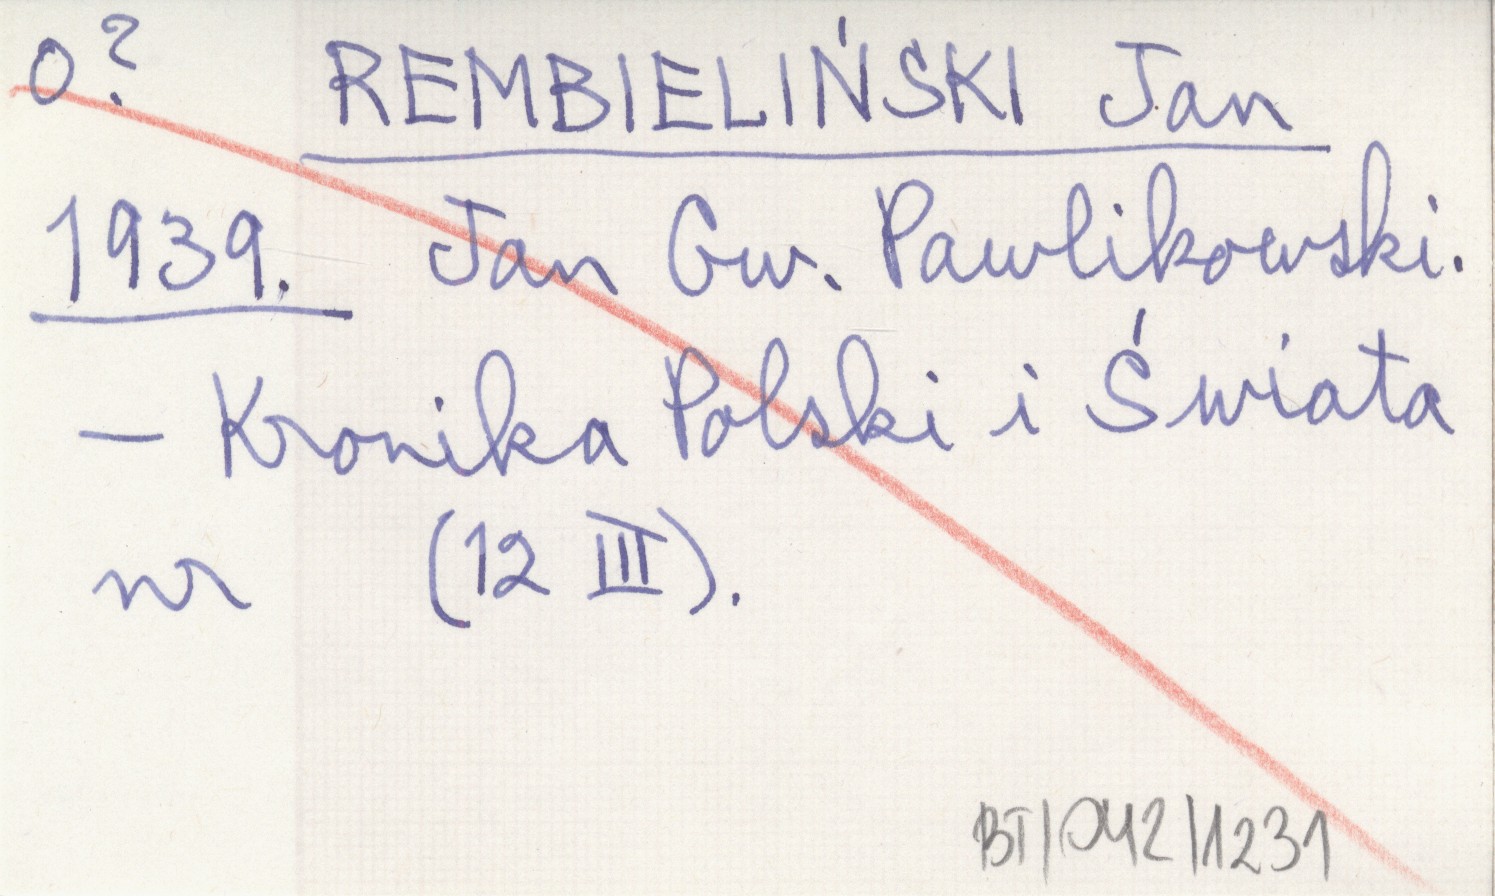 O? REMBIELIŃSKI Jan
1939. Jan Gw. Pawlikowski.
– Kronika Polski i Świata
nr (12 III).
BT/042/1231